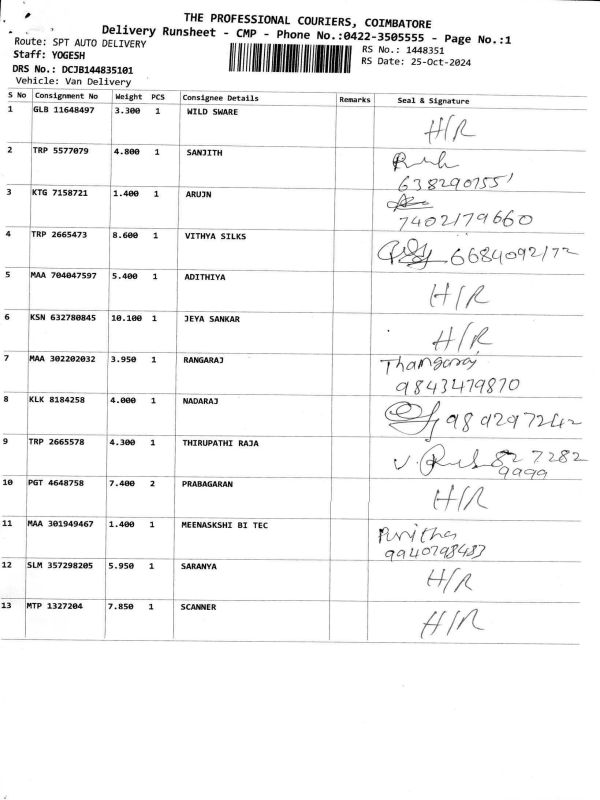 THE PROFESSIONAL COURIERS, COIMBATORE
Delivery Runsheet - CMP - Phone No.:0422-3505555 - Page No.:1
Route: SPT AUTO DELIVERY
RS No.: 1448351
Staff: YOGESH
RS Date: 25-Oct-2024
DRS No.: DCJB144835101
Vehicle: Van Delivery
S No Consignment No Weight PCS Consignee Details Remarks Seal & Signature
1 GLB 11648497 3.300 1 WILD SWARE H/R
2 TRP 5577079 4.800 1 SANJITH
3 KTG 7158721 1.400 1 ARUJN
7402179660
4 TRP 2665473 8.600 1 VITHYA SILKS 6684092172
5 MAA 704047597 5.400 1 ADITHIYA H/R
6 KSN 632780845 10.100 1 JEYA SANKAR H/R
7 MAA 302202032 3.950 1 RANGARAJ Thangaraj
9843479870
8 KLK 8184258 4.000 1 NADARAJ 9892972242
9 TRP 2665578 4.300 1 THIRUPATHI RAJA 82 7282
9999
10 PGT 4648758 7.400 2 PRABAGARAN H/R
11 MAA 301949467 1.400 1 MEENASKSHI BI TEC Punitha
9940798483
12 SLM 357298205 5.950 1 SARANYA H/R
13 MTP 1327204 7.850 1 SCANNER H/R